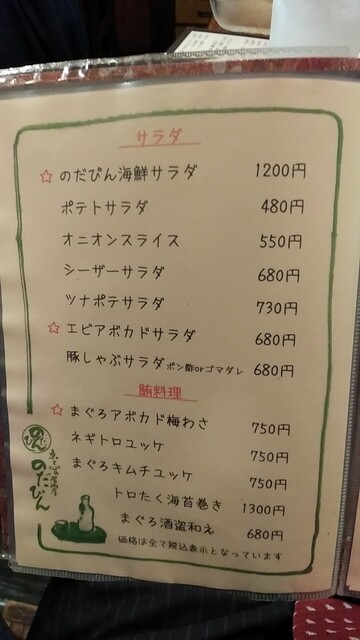 サラダ
☆ のだぴん海鮮サラダ 1200円
ポテトサラダ 480円
オニオンスライス 550円
シーザーサラダ 680円
ツナポテサラダ 730円
☆ エビアボカドサラダ 680円
豚しゃぶサラダ ポン酢orゴマダレ 680円
鮪料理
☆ まぐろアボカド梅わさ 750円
ネギトロユッケ 750円
まぐろキムチユッケ 750円
トロたく海苔巻き 1300円
まぐろ酒盗和え 680円
価格は全て税込表示となっています
のだぴん